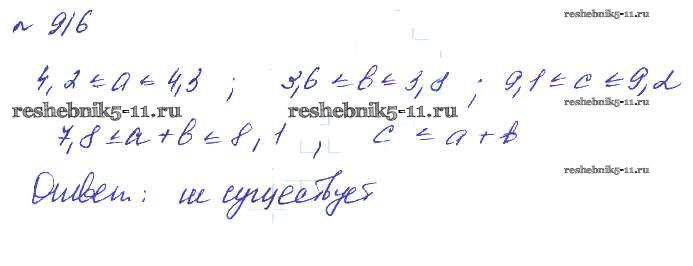 № 916
reshebnik5-11.ru
4,2 ≤ a ≤ 4,3 ; 3,6 ≤ b ≤ 3,8 ; 9,1 ≤ c ≤ 9,2
reshebnik5-11.ru reshebnik5-11.ru reshebnik5-11.ru
7,8 ≤ a + b ≤ 8,1 , c ≤ a + b
reshebnik5-11.ru
Ответ: не существует